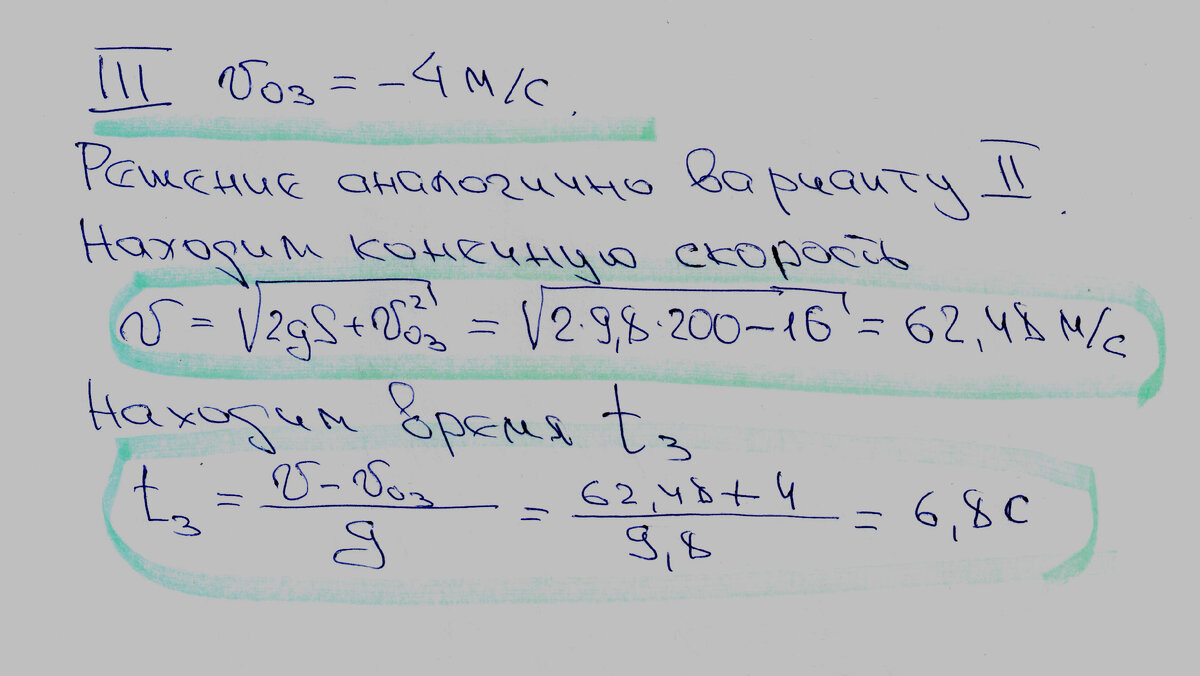 III υ₀₃ = -4 м/с.
Решение аналогично варианту II.
Находим конечную скорость
υ = √(2gS + υ₀₃²) = √(2·9,8·200-16) = 62,48 м/с
Находим время t₃
t₃ = (υ - υ₀₃)/g = (62,48 + 4)/9,8 = 6,8 с